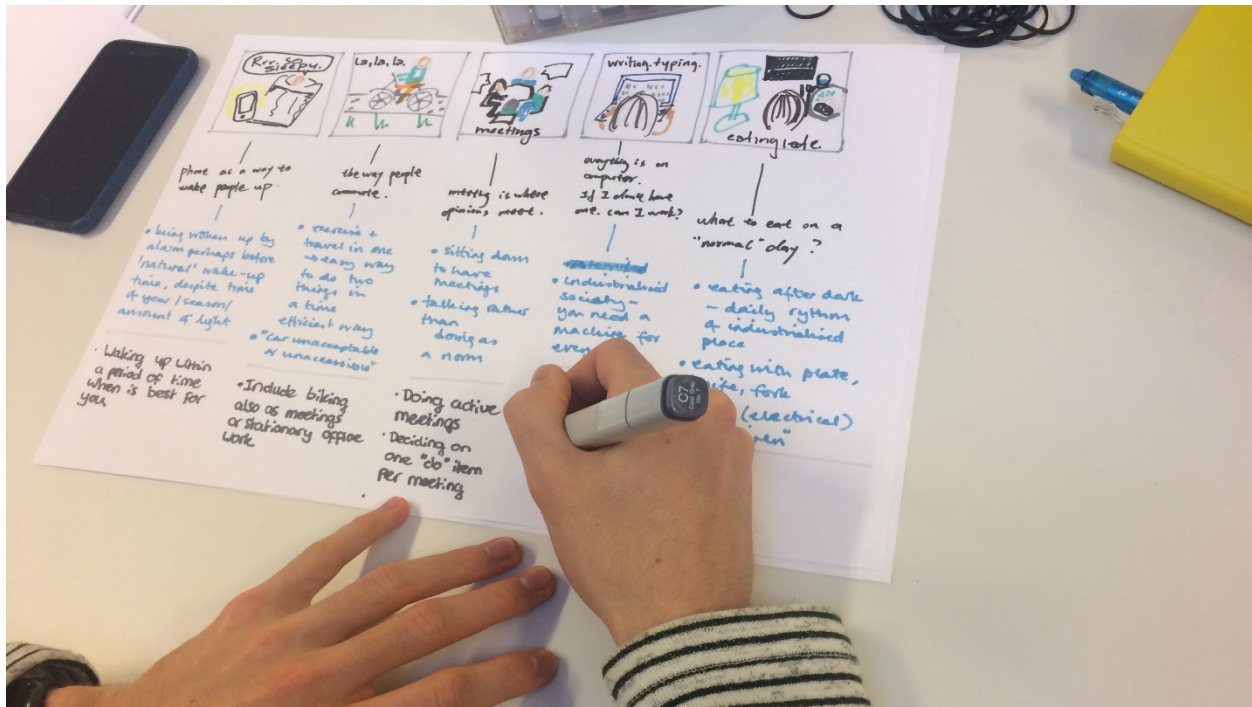 Rrr. so
sleepy.
La, la, la.
meetings
writing. typing.
eating late.
phone as a way to
wake people up.
• being woken up by
alarm perhaps before
'natural' wake-up
time, despite time
of year / season /
amount of light
· Waking up within
a period of time
when is best for
you
the way people
commute.
• exercise +
travel in one
→ easy way
to do two
things in
a time
efficient way
• "car unacceptable
or unaccessible"
• Include biking
also as meetings
or stationary office
work
meeting is where
opinions meet.
• sitting down
to have
meetings
• talking rather
than
doing as
a norm
· Doing active
meetings
· Deciding on
one "do" item
per meeting
everything is on
computer.
If I don't have
one. can I work?
• industrialised
society –
you need a
machine for
what to eat on a
"normal" day?
• eating after dark
– daily rythm
of industrialised
place
• eating with plate,
fork
(electrical)
C7
Cool Gray
No. 7